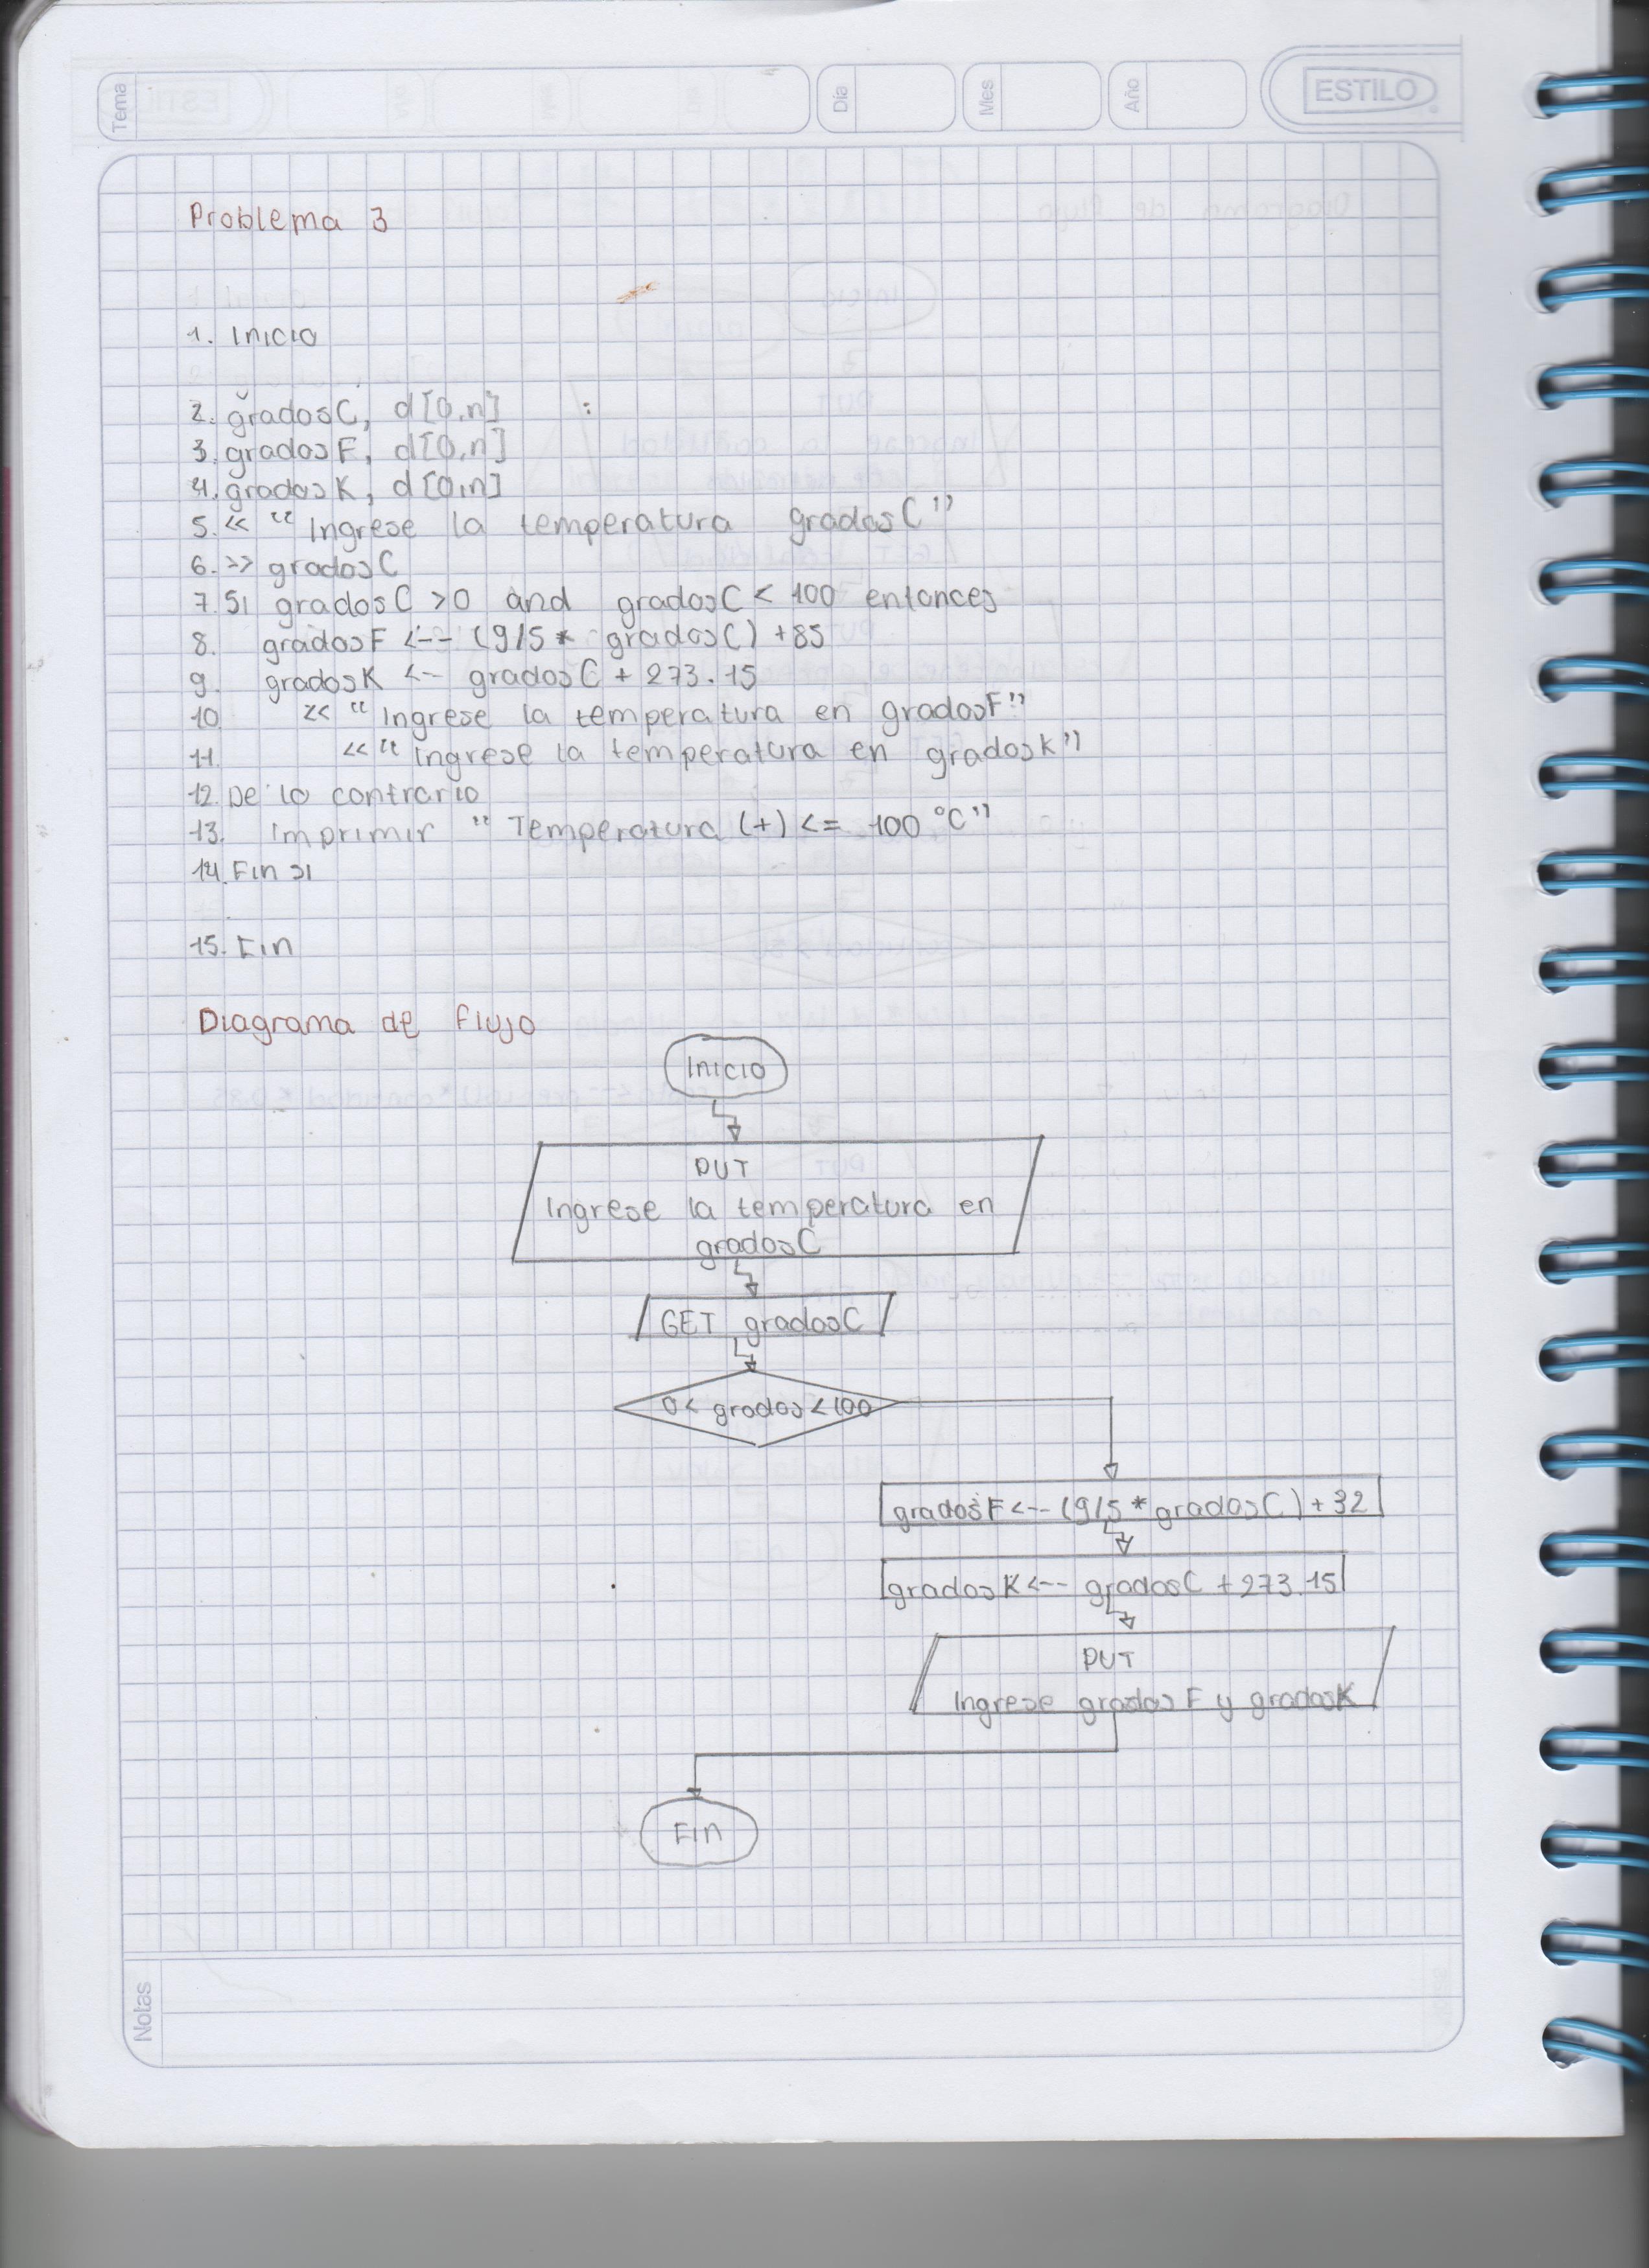 Tema
Día
Mes
Año
ESTILO
Problema 3
1. Inicio
2. gradosC, d[0,n]
3. gradosF, d[0,n]
4. gradosK, d[0,n]
5. << “Ingrese la temperatura gradosC”
6. >> gradosC
7. Si gradosC >0 and gradosC < 100 entonces
8. gradosF <-- (9/5* gradosC) +85
9. gradosK <-- gradosC + 273.15
10 << “Ingrese la temperatura en gradosF”
11. << “Ingrese la temperatura en gradosK”
12. De lo contrario
13. Imprimir “Temperatura (+) <= 100 °C”
14. Fin si
15. Fin
Diagrama de flujo
Inicio
PUT
Ingrese la temperatura en
gradosC
GET gradosC
0< grados <100
gradosF <-- (9/5 * gradosC) + 32
gradosK <-- gradosC + 273.15
PUT
Ingrese gradosF y gradosK
Fin
Notas